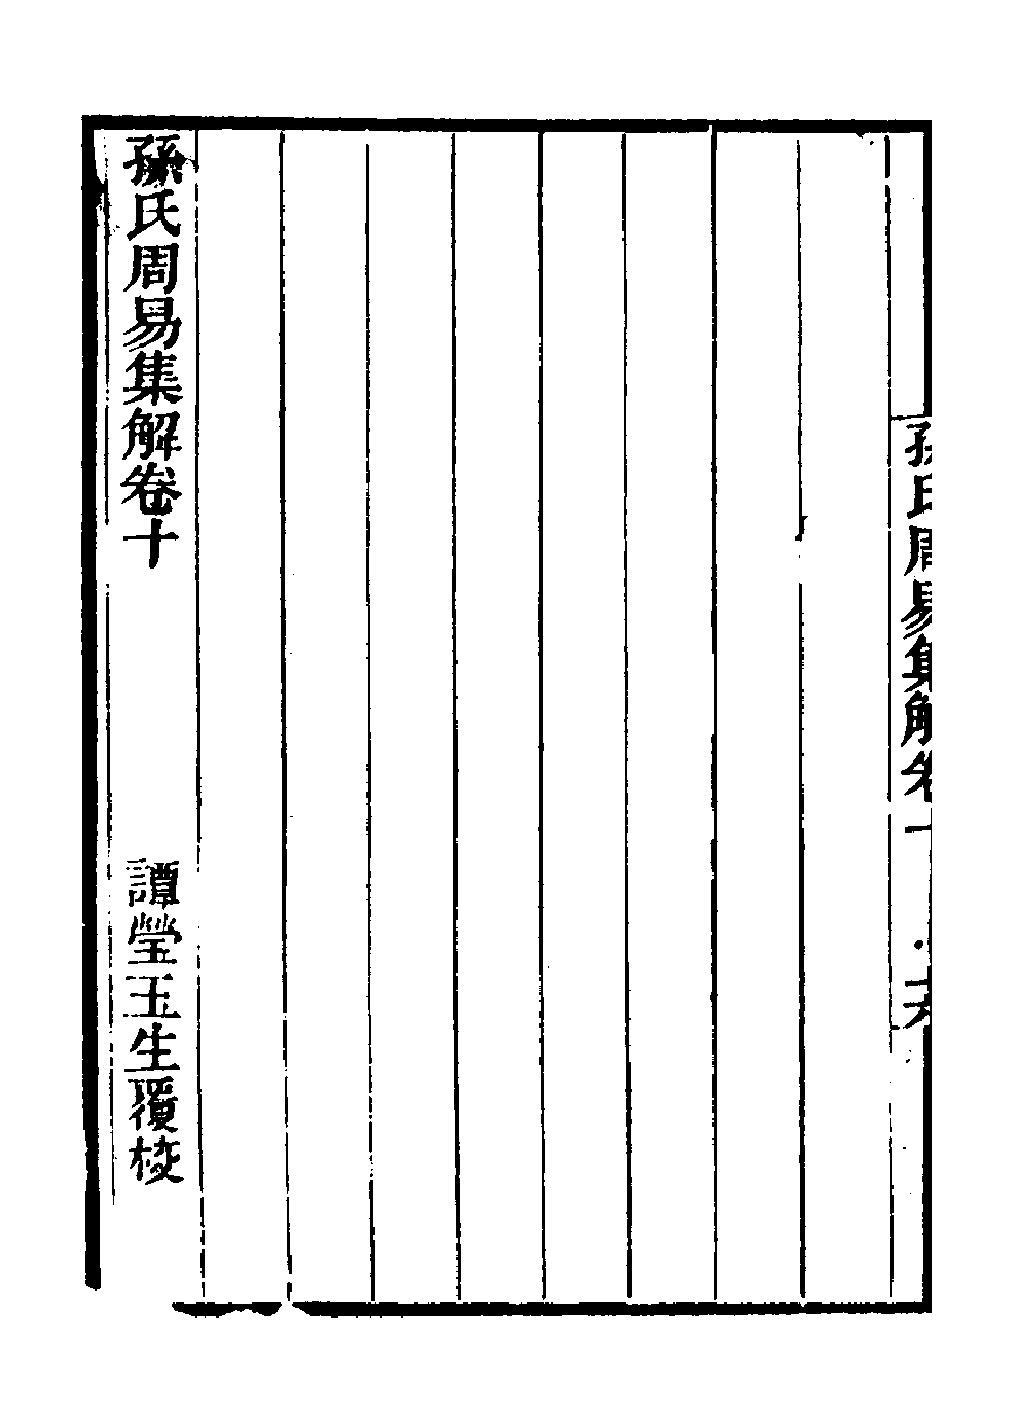 孫氏周易集解卷十
六
孫氏周易集解卷十
譚瑩玉生覆校